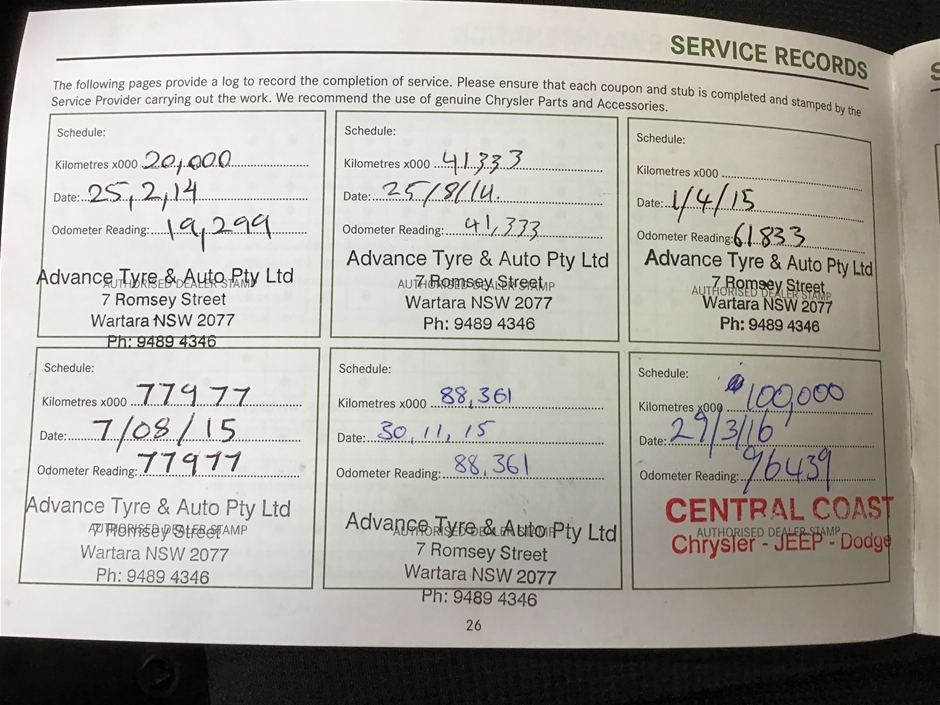 SERVICE RECORDS
The following pages provide a log to record the completion of service. Please ensure that each coupon and stub is completed and stamped by the
Service Provider carrying out the work. We recommend the use of genuine Chrysler Parts and Accessories.
Schedule:
Kilometres x000 20,000
Date: 25,2,14
Odometer Reading: 19,299
Advance Tyre & Auto Pty Ltd
AUTHORISED DEALER STAMP
7 Romsey Street
Wartara NSW 2077
Ph: 9489 4346
Schedule:
Kilometres x000 41333
Date: 25/8/14.
Odometer Reading: 41,333
Advance Tyre & Auto Pty Ltd
AUTHORISED DEALER STAMP
7 Romsey Street
Wartara NSW 2077
Ph: 9489 4346
Schedule:
Kilometres x000
Date: 1/4/15
Odometer Reading: 61833
Advance Tyre & Auto Pty Ltd
7 Romsey Street
AUTHORISED DEALER STAMP
Wartara NSW 2077
Ph: 9489 4346
Schedule:
Kilometres x000 77977
Date: 7/08/15
Odometer Reading: 77977
Advance Tyre & Auto Pty Ltd
AUTHORISED DEALER STAMP
7 Romsey Street
Wartara NSW 2077
Ph: 9489 4346
Schedule:
Kilometres x000 88,361
Date: 30,11,15
Odometer Reading: 88,361
Advance Tyre & Auto Pty Ltd
AUTHORISED DEALER STAMP
7 Romsey Street
Wartara NSW 2077
Ph: 9489 4346
Schedule:
Kilometres x000 100,000
Date: 29/3/16
Odometer Reading: 96439
CENTRAL COAST
AUTHORISED DEALER STAMP
Chrysler - JEEP - Dodge
26